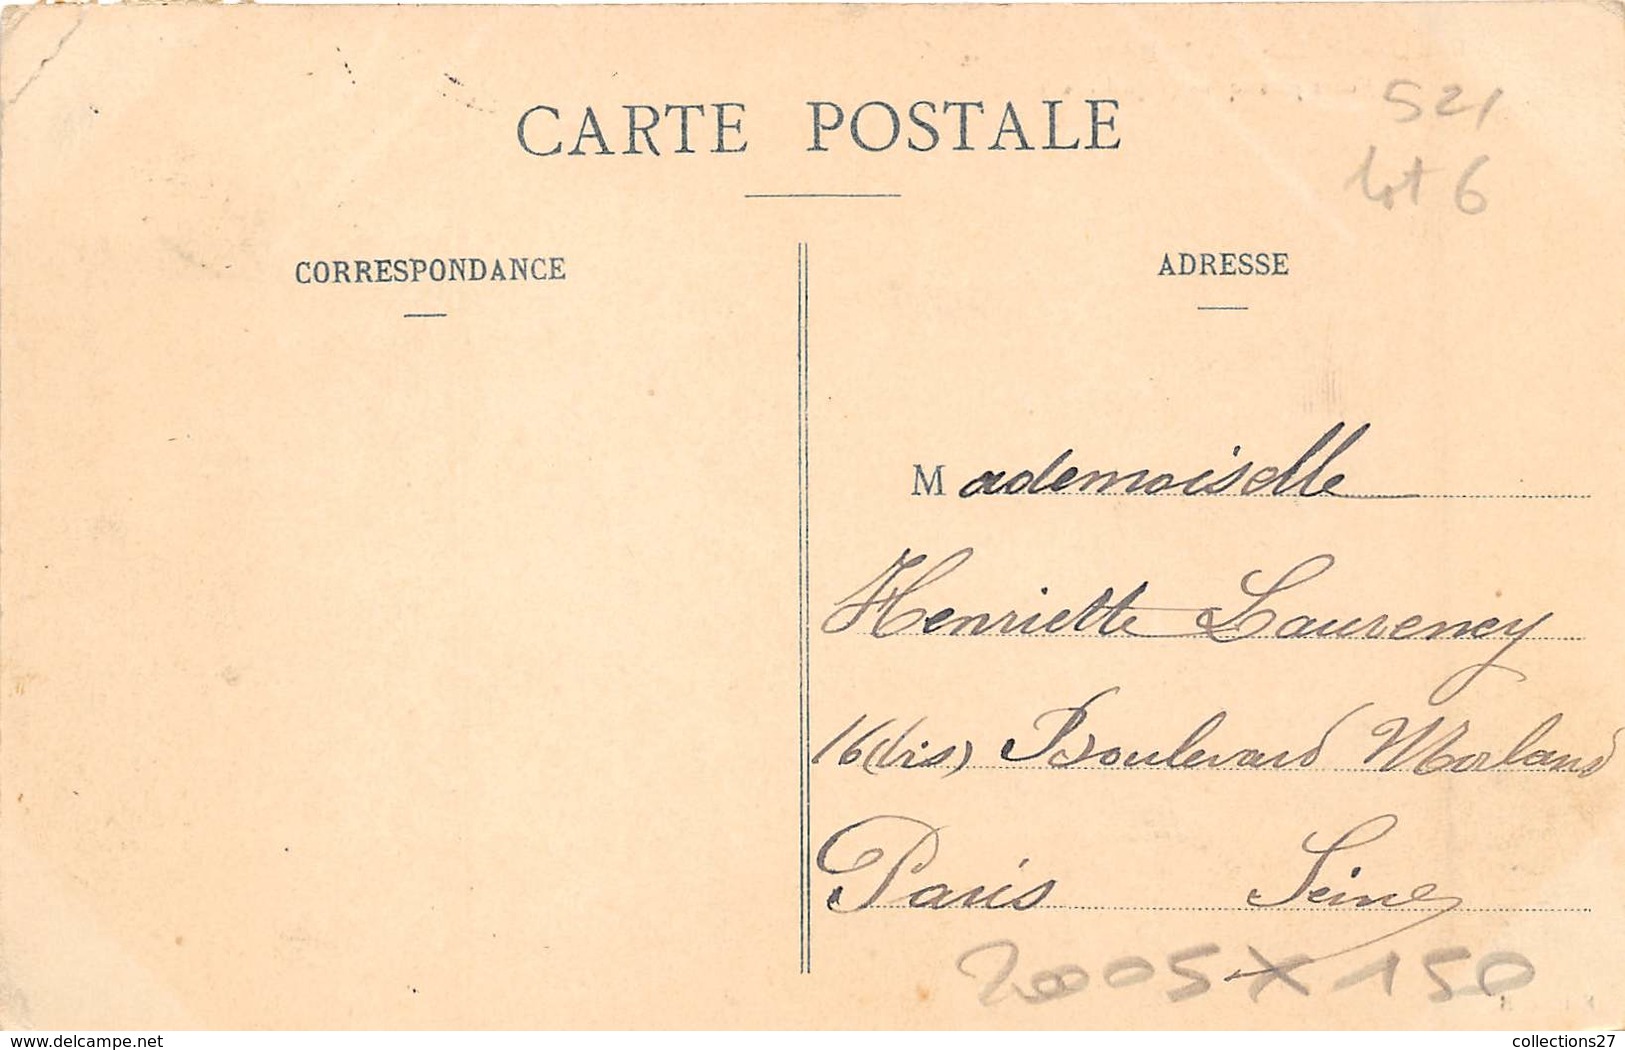 CARTE POSTALE
521
lot 6
CORRESPONDANCE
ADRESSE
Mademoiselle
Henriette Laurency
16(bis) Boulevard Morland
Paris Seine
2005 X 150
www.delcampe.net
collections27